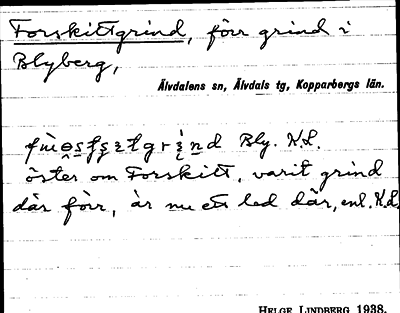 Forskittgrind, förr grind i
Blyberg,
Älvdalens sn, Älvdals tg, Kopparbergs län.
Bly. K.L.
öster om Forskitt, varit grind
där förr, är nu ett led där, enl. K.L.
HELGE LINDBERG 1938.